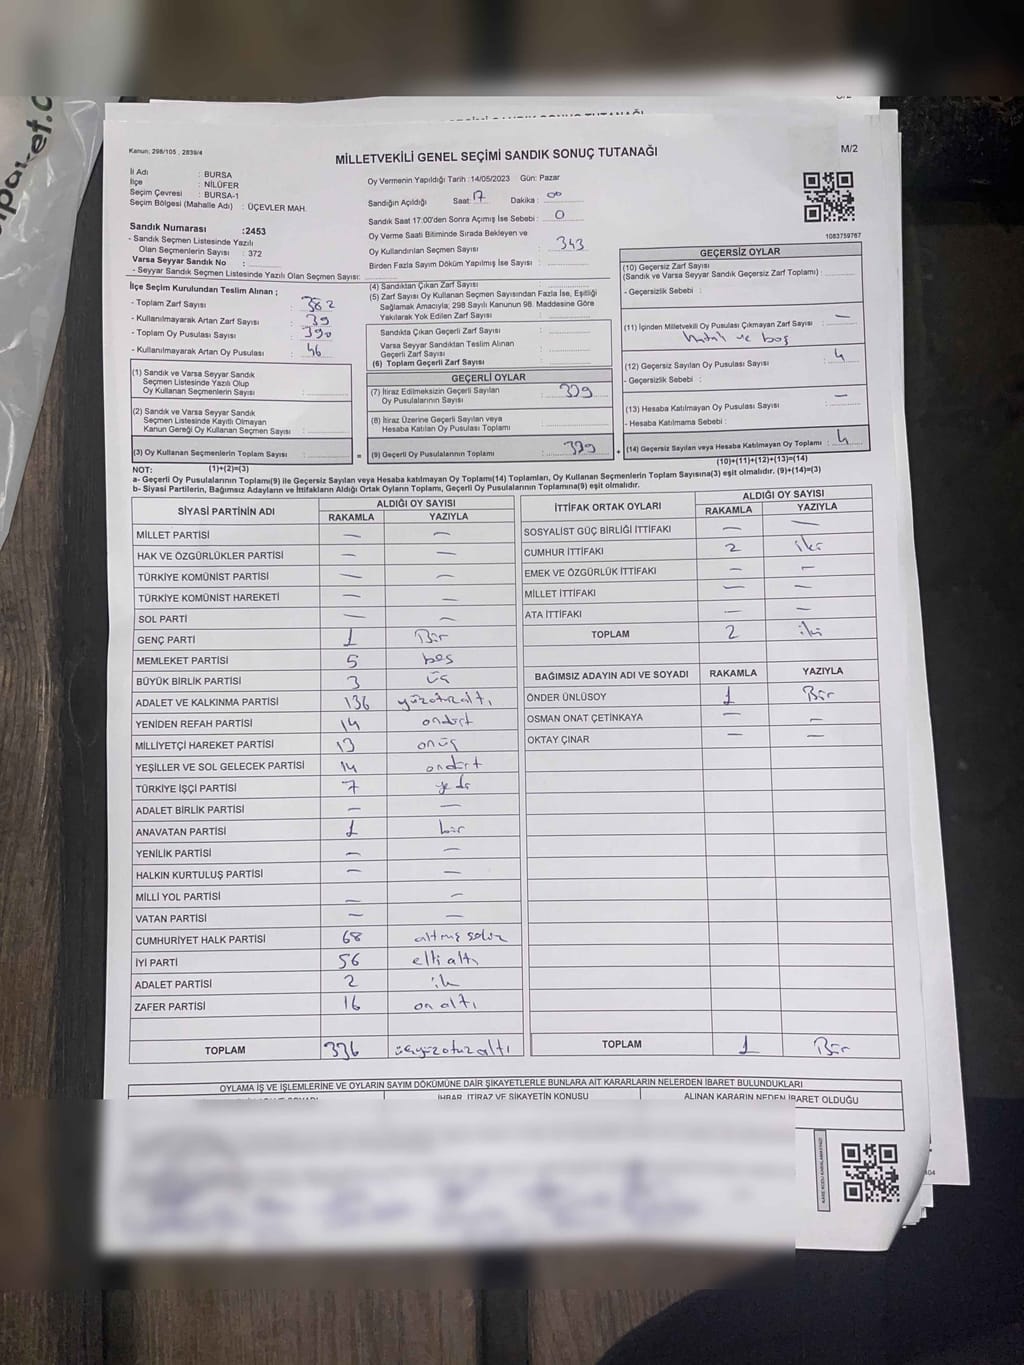 Kanun: 298/105 , 2839/4
MİLLETVEKİLİ GENEL SEÇİMİ SANDIK SONUÇ TUTANAĞI
M/2
İl Adı : BURSA
İlçe : NİLÜFER
Seçim Çevresi : BURSA-1
Seçim Bölgesi (Mahalle Adı) : ÜÇEVLER MAH.
Sandık Numarası :2453
- Sandık Seçmen Listesinde Yazılı
Olan Seçmenlerin Sayısı : 372
Varsa Seyyar Sandık No :
- Seyyar Sandık Seçmen Listesinde Yazılı Olan Seçmen Sayısı:
Oy Vermenin Yapıldığı Tarih :14/05/2023 Gün: Pazar
Sandığın Açıldığı Saat: 17 Dakika : 00
Sandık Saat 17:00'den Sonra Açımış İse Sebebi : 0
Oy Verme Saati Bitiminde Sırada Bekleyen ve
Oy Kullandırılan Seçmen Sayısı : 343
Birden Fazla Sayım Döküm Yapılmış İse Sayısı :
1083759767
İlçe Seçim Kurulundan Teslim Alınan ;
- Toplam Zarf Sayısı : 382
- Kullanılmayarak Artan Zarf Sayısı : 39
- Toplam Oy Pusulası Sayısı : 390
- Kullanılmayarak Artan Oy Pusulası : 46
(1) Sandık ve Varsa Seyyar Sandık
Seçmen Listesinde Yazılı Olup
Oy Kullanan Seçmenlerin Sayısı :
(2) Sandık ve Varsa Seyyar Sandık
Seçmen Listesinde Kayıtlı Olmayan
Kanun Gereği Oy Kullanan Seçmen Sayısı :
(3) Oy Kullanan Seçmenlerin Toplam Sayısı :
(1)+(2)=(3)
(4) Sandıktan Çıkan Zarf Sayısı :
(5) Zarf Sayısı Oy Kullanan Seçmen Sayısından Fazla İse, Eşitliği
Sağlamak Amacıyla; 298 Sayılı Kanunun 98. Maddesine Göre
Yakılarak Yok Edilen Zarf Sayısı :
Sandıkta Çıkan Geçerli Zarf Sayısı :
Varsa Seyyar Sandıktan Teslim Alınan
Geçerli Zarf Sayısı :
(6) Toplam Geçerli Zarf Sayısı :
GEÇERLİ OYLAR
(7) İtiraz Edilmeksizin Geçerli Sayılan
Oy Pusulalarının Sayısı : 339
(8) İtiraz Üzerine Geçerli Sayılan veya
Hesaba Katılan Oy Pusulası Toplamı :
= (9) Geçerli Oy Pusulalarının Toplamı : 339
GEÇERSİZ OYLAR
(10) Geçersiz Zarf Sayısı
(Sandık ve Varsa Seyyar Sandık Geçersiz Zarf Toplamı) :
- Geçersizlik Sebebi :
(11) İçinden Milletvekili Oy Pusulası Çıkmayan Zarf Sayısı : —
Hatalı ve boş
(12) Geçersiz Sayılan Oy Pusulası Sayısı : 4
- Geçersizlik Sebebi :
(13) Hesaba Katılmayan Oy Pusulası Sayısı : —
- Hesaba Katılmama Sebebi :
+ (14) Geçersiz Sayılan veya Hesaba Katılmayan Oy Toplamı : 4
(10)+(11)+(12)+(13)=(14)
NOT:
a- Geçerli Oy Pusulalarının Toplamı(9) ile Geçersiz Sayılan veya Hesaba katılmayan Oy Toplamı(14) Toplamları, Oy Kullanan Seçmenlerin Toplam Sayısına(3) eşit olmalıdır. (9)+(14)=(3)
b- Siyasi Partilerin, Bağımsız Adayların ve İttifakların Aldığı Ortak Oyların Toplamı, Geçerli Oy Pusulalarının Toplamına(9) eşit olmalıdır.
SİYASİ PARTİNİN ADI ALDIĞI OY SAYISI
RAKAMLA YAZIYLA
MİLLET PARTİSİ — —
HAK VE ÖZGÜRLÜKLER PARTİSİ — —
TÜRKİYE KOMÜNİST PARTİSİ — —
TÜRKİYE KOMÜNİST HAREKETİ — —
SOL PARTİ — —
GENÇ PARTİ 1 Bir
MEMLEKET PARTİSİ 5 beş
BÜYÜK BİRLİK PARTİSİ 3 üç
ADALET VE KALKINMA PARTİSİ 136 yüzotuzaltı
YENİDEN REFAH PARTİSİ 14 ondört
MİLLİYETÇİ HAREKET PARTİSİ 13 onüç
YEŞİLLER VE SOL GELECEK PARTİSİ 14 ondört
TÜRKİYE İŞÇİ PARTİSİ 7 yedi
ADALET BİRLİK PARTİSİ — —
ANAVATAN PARTİSİ 1 bir
YENİLİK PARTİSİ — —
HALKIN KURTULUŞ PARTİSİ — —
MİLLİ YOL PARTİSİ — —
VATAN PARTİSİ — —
CUMHURİYET HALK PARTİSİ 68 altmış sekiz
İYİ PARTİ 56 elli altı
ADALET PARTİSİ 2 iki
ZAFER PARTİSİ 16 on altı
TOPLAM 336 üçyüzotuzaltı
İTTİFAK ORTAK OYLARI ALDIĞI OY SAYISI
RAKAMLA YAZIYLA
SOSYALİST GÜÇ BİRLİĞİ İTTİFAKI — —
CUMHUR İTTİFAKI 2 iki
EMEK VE ÖZGÜRLÜK İTTİFAKI — —
MİLLET İTTİFAKI — —
ATA İTTİFAKI — —
TOPLAM 2 iki
BAĞIMSIZ ADAYIN ADI VE SOYADI RAKAMLA YAZIYLA
ÖNDER ÜNLÜSOY 1 Bir
OSMAN ONAT ÇETİNKAYA — —
OKTAY ÇINAR — —
TOPLAM 1 Bir
OYLAMA İŞ VE İŞLEMLERİNE VE OYLARIN SAYIM DÖKÜMÜNE DAİR ŞİKAYETLERLE BUNLARA AİT KARARLARIN NELERDEN İBARET BULUNDUKLARI
İHBAR, İTİRAZ VE ŞİKAYETİN KONUSU ALINAN KARARIN NEDEN İBARET OLDUĞU